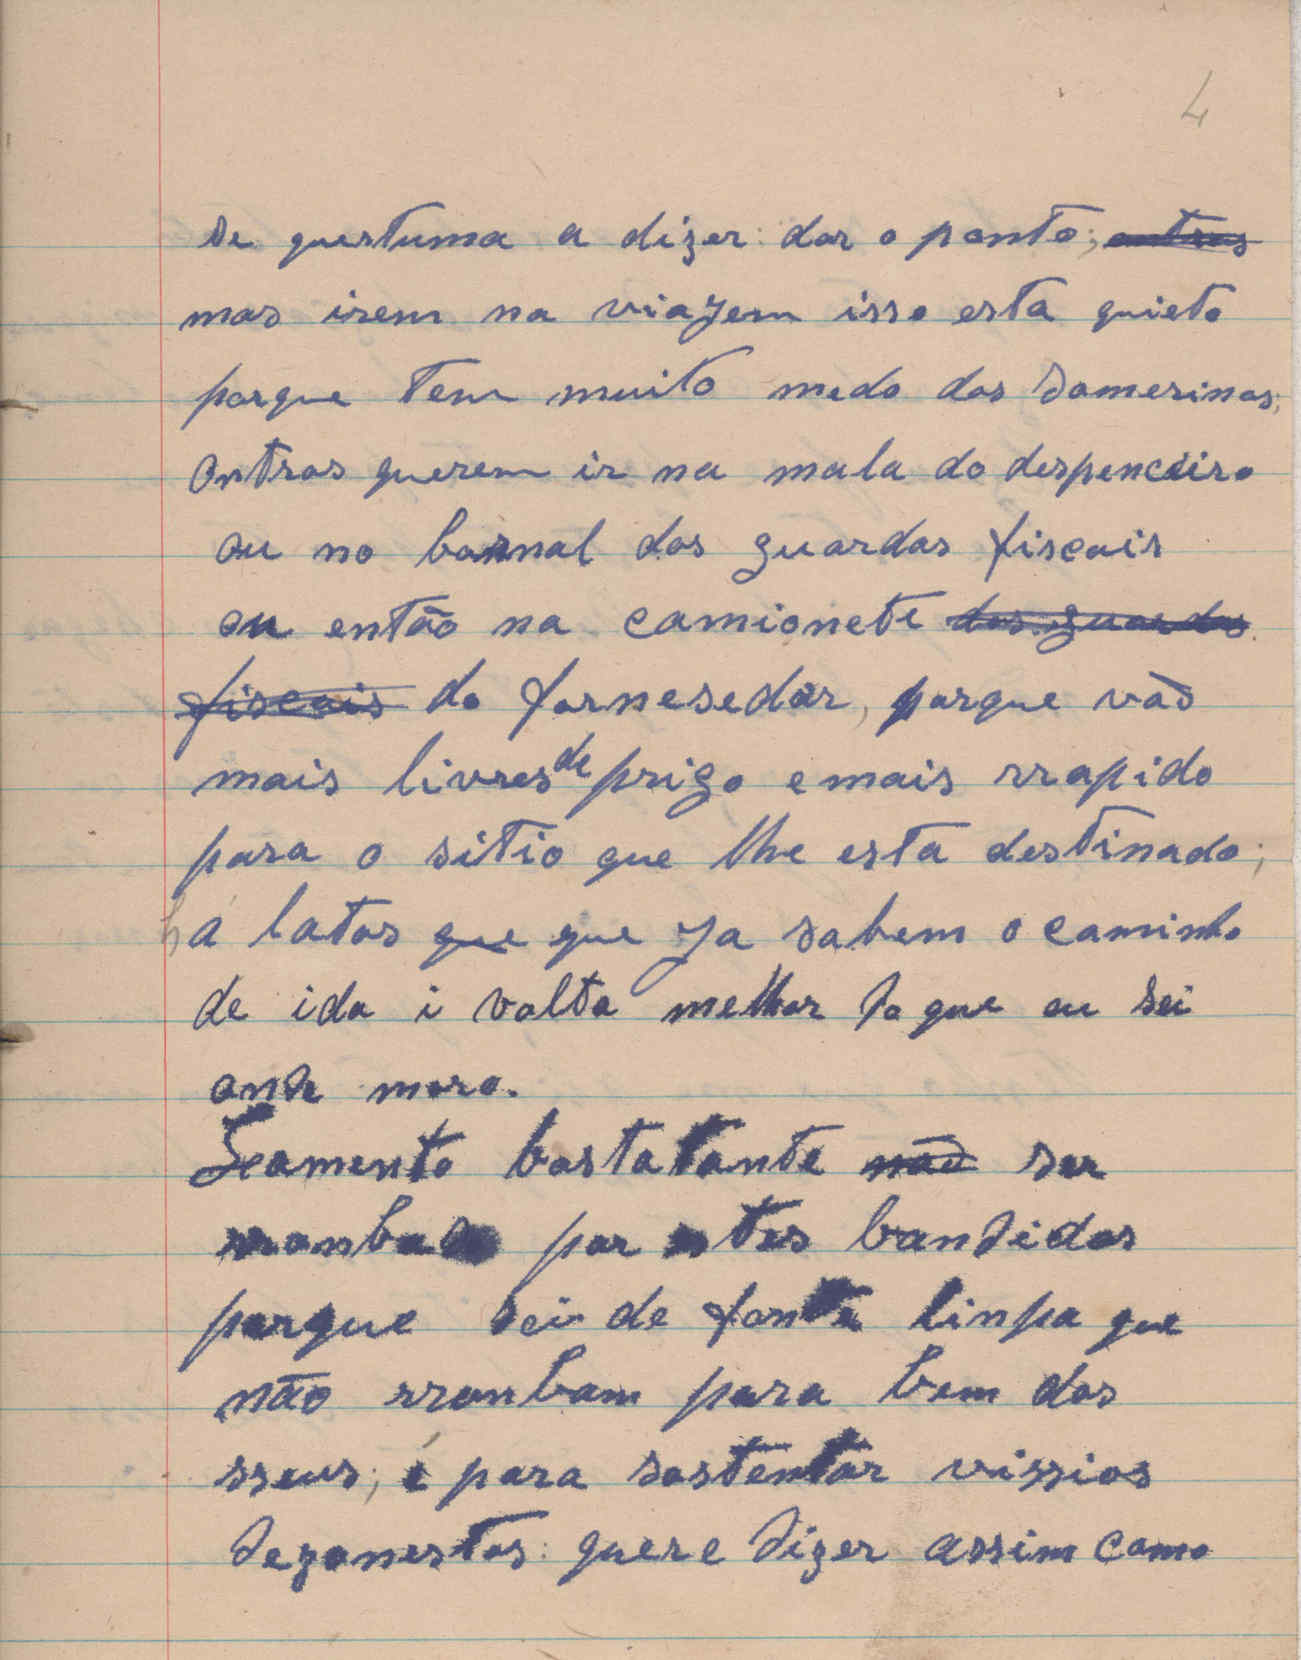 4
se questuma a dizer: dar o ponto; outros
mas irem na viajem isso esta quieto
porque tem muito medo das
Outros querem ir na mala do despenceiro
ou no bornal dos guardas fiscais
ou então na camionete dos guardas
fiscais do fornesedor, porque vão
mais livres de prigo e mais rrapido
para o sitio que lhe esta destinado;
há latas que que ja sabem o caminho
de ida i volta melhor do que eu sei
onde moro.
Leamento bastatante não ser
rroubado por estes bandidos
porque sei de fonte linpa que
não rroubam para bem dos
sseus; é para sostentar vissios
dezonestos: quere dizer assim como